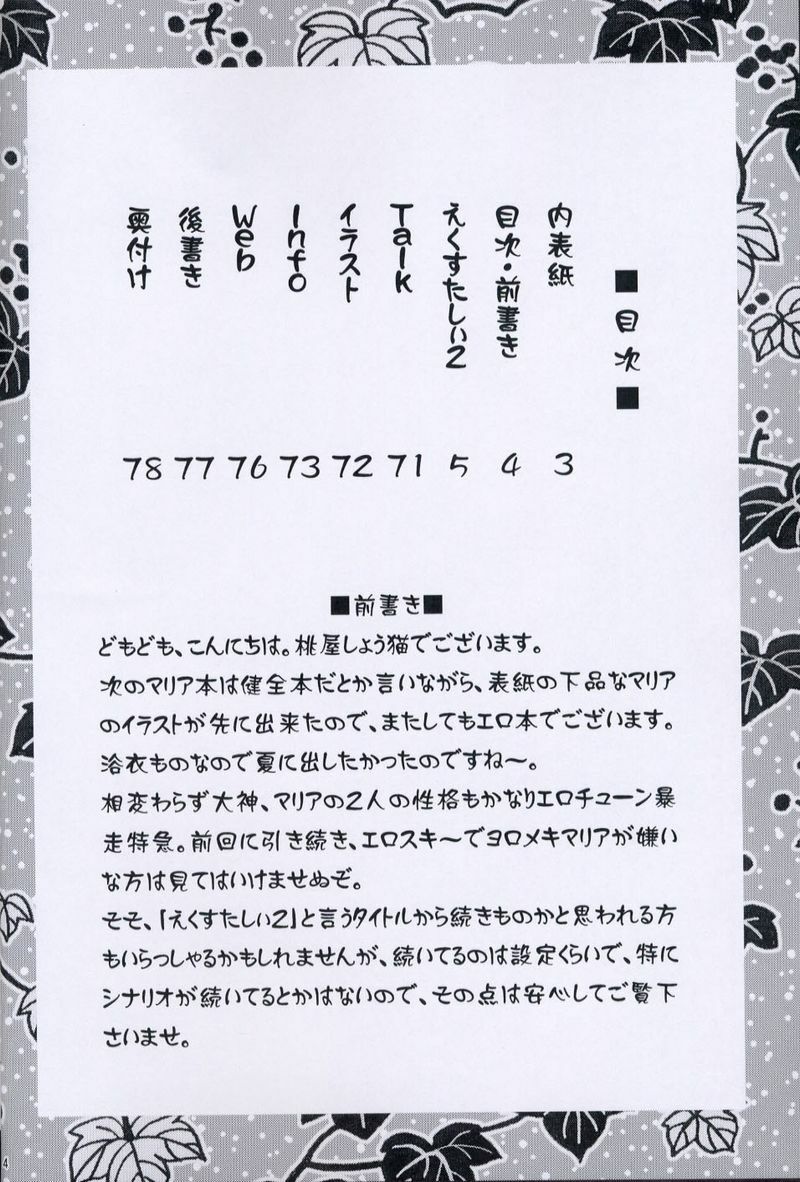 ■目次■
内表紙 3
目次・前書き 4
えくすたしぃ2 5
Talk 71
イラスト 72
Info 73
Web 76
後書き 77
奥付け 78
■前書き■
どもども、こんにちは。桃屋しょう猫でございます。
次のマリア本は健全本だとか言いながら、表紙の下品なマリア
のイラストが先に出来たので、またしてもエロ本でございます。
浴衣ものなので夏に出したかったのですね〜。
相変わらず大神、マリアの2人の性格もかなりエロチューン暴
走特急。前回に引き続き、エロスキ〜でヨロメキマリアが嫌い
な方は見てはいけませぬぞ。
そそ、「えくすたしぃ2」と言うタイトルから続きものかと思われる方
もいらっしゃるかもしれませんが、続いてるのは設定くらいで、特に
シナリオが続いてるとかはないので、その点は安心してご覧下
さいませ。
4